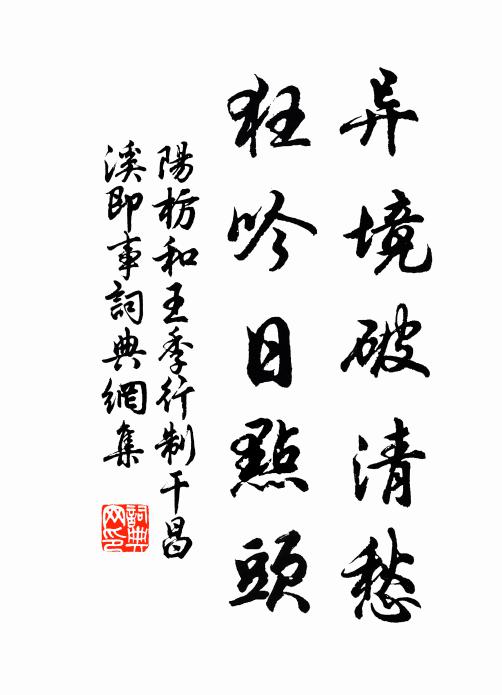 异境破清愁
狂吟日點頭
陽枋和王季行制干昌
溪即事詞典網集
詞典网印